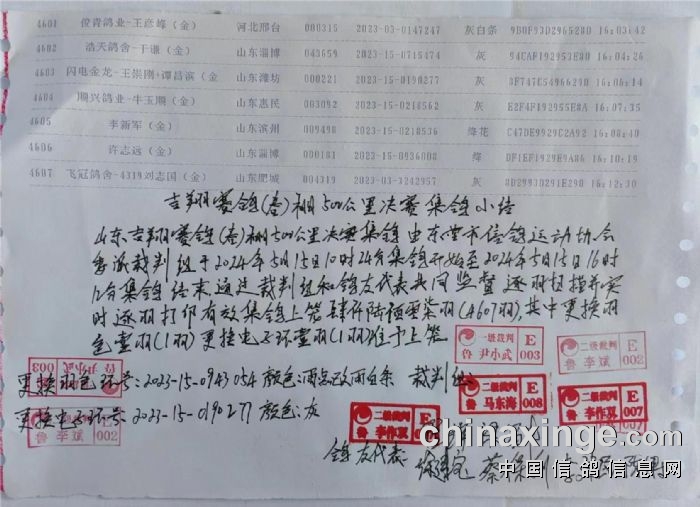 4601 俊青鸽业-王彦峰（金） 河北邢台 000315 2023-03-0147247 灰白条 9B0F93D2965280 16:03:42
4602 浩天鸽舍-于谦（金） 山东淄博 043659 2023-15-0715474 灰 94CAF192953E8A 16:04:26
4603 闪电金龙-王崇刚+谭昌滨（金 山东潍坊 000221 2023-15-0190277 灰 16:06:14
4604 顺兴鸽业-牛玉顺（金） 山东惠民 003092 2023-15-0216562 灰 E2F4F192955E8A 16:07:35
4605 李新军（金） 山东滨州 009498 2023-15-0218536 绛花 C47DE9929C2A92 16:08:40
4606 许志远（金） 山东淄博 000181 2023-15-0936008 绛 DF1EF1929E9A86 16:10:19
4607 飞冠鸽舍-4319刘志国（金） 山东肥城 004319 2023-3-3242957 灰 3D29930291E290 16:12:30
吉翔赛鸽(春)棚500公里决赛集鸽小结
山东吉翔赛鸽(春)棚500公里决赛集鸽由东营市信鸽运动协会
委派裁判组于2024年5月15日10时24分集鸽开始至2024年5月15日16时
12分集鸽结束通过裁判组和鸽友代表共同监督逐羽扫描并实
时逐羽打印有效集鸽上笼肆仟陆佰零柒羽(4607羽),其中更换羽
色壹羽(1羽)更换电子环壹羽(1羽)准予上笼
一级裁判 E
鲁 尹小武 003
二级裁判 E
鲁 李斌 002
更换羽色环号:2023-15-0943054 颜色:雨点改雨白条 裁判组:
二级裁判 E
鲁 马东海 008
二级裁判 E
鲁 李作夏 007
更换电子环号:2023-15-0190277 颜色:灰
鲁 李斌 002
二级裁判
鲁 李作夏
鸽友代表:
chinaxinge.com
中国信鸽信息网